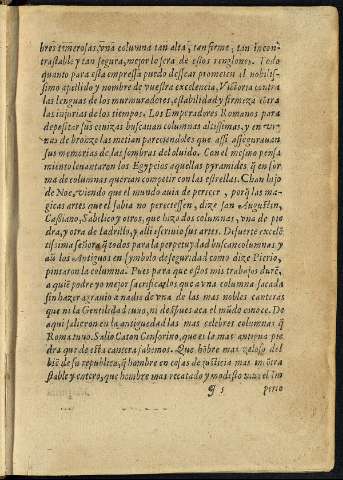 bres tumerosas, vna columna tan alta, tan firme, tan incon-
trastable y tan segura, mejor lo sera de estos renglones. Todo
quanto para esta empressa puedo dessear prometen el nobilis-
simo apellido y nombre de vuestra excelencia, Victoria contra
las lenguas de los murmuradores, estabilidad y firmeza cõtra
las injurias de los tiempos. Los Emperadores Romanos para
depositar sus cenizas buscauan columnas altissimas, y en vr-
nas de bronze las metian pareciendoles que assi asseguraauan
sus memorias de las sombras del oluido. Con el mismo pensa
miento leuantaron los Egypcios aquellas pyramides q̃ en for
ma de columnas querian competir con las estrellas. Chan hijo
de Noe, viendo que el mundo auia de perecer, porq̃ las ma-
gicas artes que el sabia no pereciessen, dize san Augustin,
Cassiano, Sabelico y otros, que hizo dos columnas, vna de pie
dra, y otra de ladrillo, y alli escriuio sus artes. De suerte excelẽ
tissima señora q̃ todos para la perpetuydad buscan columnas y
aũ los Antiguos en symbolo de seguridad como dize Pierio,
pintaron la columna. Pues para que estos mis trabajos durẽ,
a quiẽ podre yo mejor sacrificarlos que a vna columna sacada
sin hazer agrauio a nadie de vna de las mas nobles canteras
que ni la Gentilidad tuuo, ni despues aca el mũdo conoce. De
aqui salieron en la antiguedad las mas celebres columnas q̃
Roma tuuo. Salio Caton Censorino, que es la mas antigua pie
dra que de esta cantera sabemos. Que hõbre mas zeloso del
biẽ de su republica, q̃ hombre en cosas de justicia mas incõtra
stable y entero, que hombre mas recatado y modesto tuuo el Im
¶ 5 perio